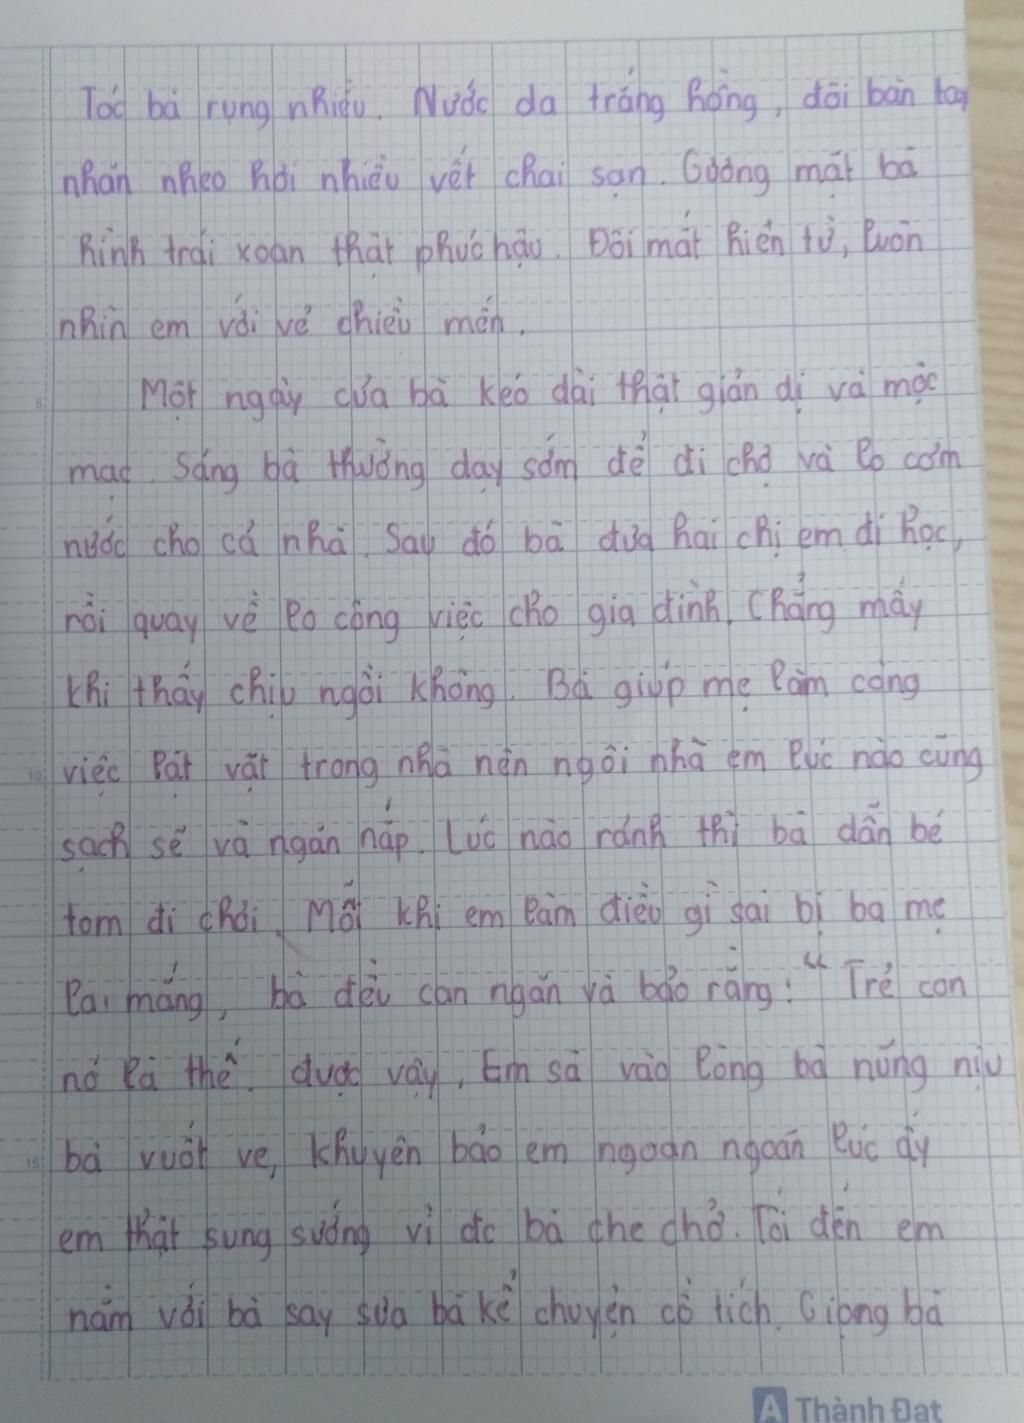 Tóc bà rụng nhiều. Nước da trắng hồng, đôi bàn tay
nhăn nheo hơi nhiều vết chai sạn. Gương mặt bà
hình trái xoan thật phúc hậu. Đôi mắt hiền từ, luôn
nhìn em với vẻ chiều mến.
Một ngày của bà kéo dài thật giản dị và mộc
mạc. Sáng bà thường dạy sớm để đi chợ và lo cơm
nước cho cả nhà. Sau đó bà đưa hai chị em đi học,
rồi quay về lo công việc cho gia đình. Chẳng mấy
khi thấy chịu ngồi không. Bà giúp mẹ làm công
việc lặt vặt trong nhà nên ngôi nhà em lúc nào cũng
sạch sẽ và ngăn nắp. Lúc nào rảnh thì bà dẫn bé
tom đi chơi. Mỗi khi em làm điều gì sai bị ba mẹ
la mắng, bà đều can ngăn và bảo rằng: "Trẻ con
nó là thế. được vậy, Em sà vào lòng bà nũng nịu
bà vuốt ve, khuyên bảo em ngoan ngoãn lúc ấy
em thật sung sướng vì đc bà che chở. Tối đến em
nằm với bà say sưa bà kể chuyện cổ tích. Giọng bà
Thành Đạt